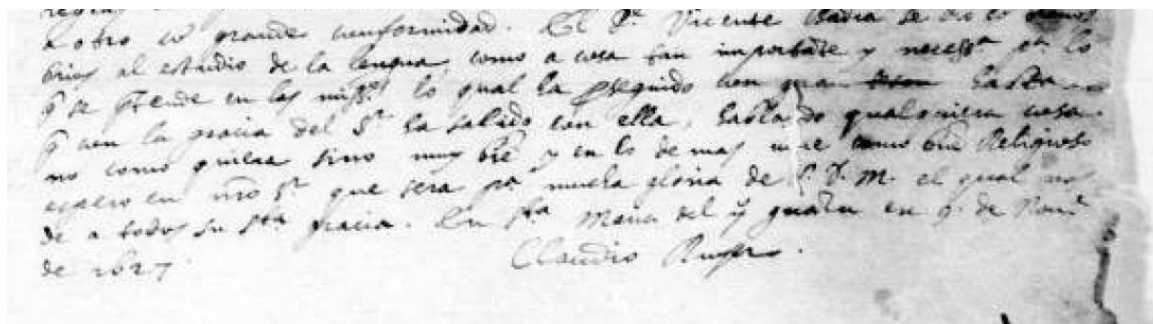 a otro cõ grande conformidad. El Pe. Vicente Badia se dio cõ
brios al estudio de la lengua, como a cosa tan importãte y necessa. pa. lo
q se prtende en las miss.s lo qual ha prseguido con gran hasta
q con la gracia del Sr. ha salido con ella, hablãdo qualquiera cosa
no como quiera sino muy biẽ y en lo demas como buẽ Religioso
espero en nrõ Sr. que sera pa. mucha gloria de S. D. M. el qual nos
de a todos su sta. gracia. En sta. Maria del yguaçu en 9. de Nou.e
de 1627
Claudio Ruyer.